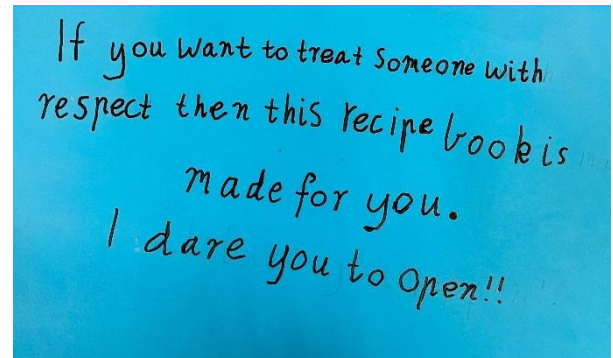 If you want to treat someone with
respect then this recipe book is
made for you.
I dare you to open!!